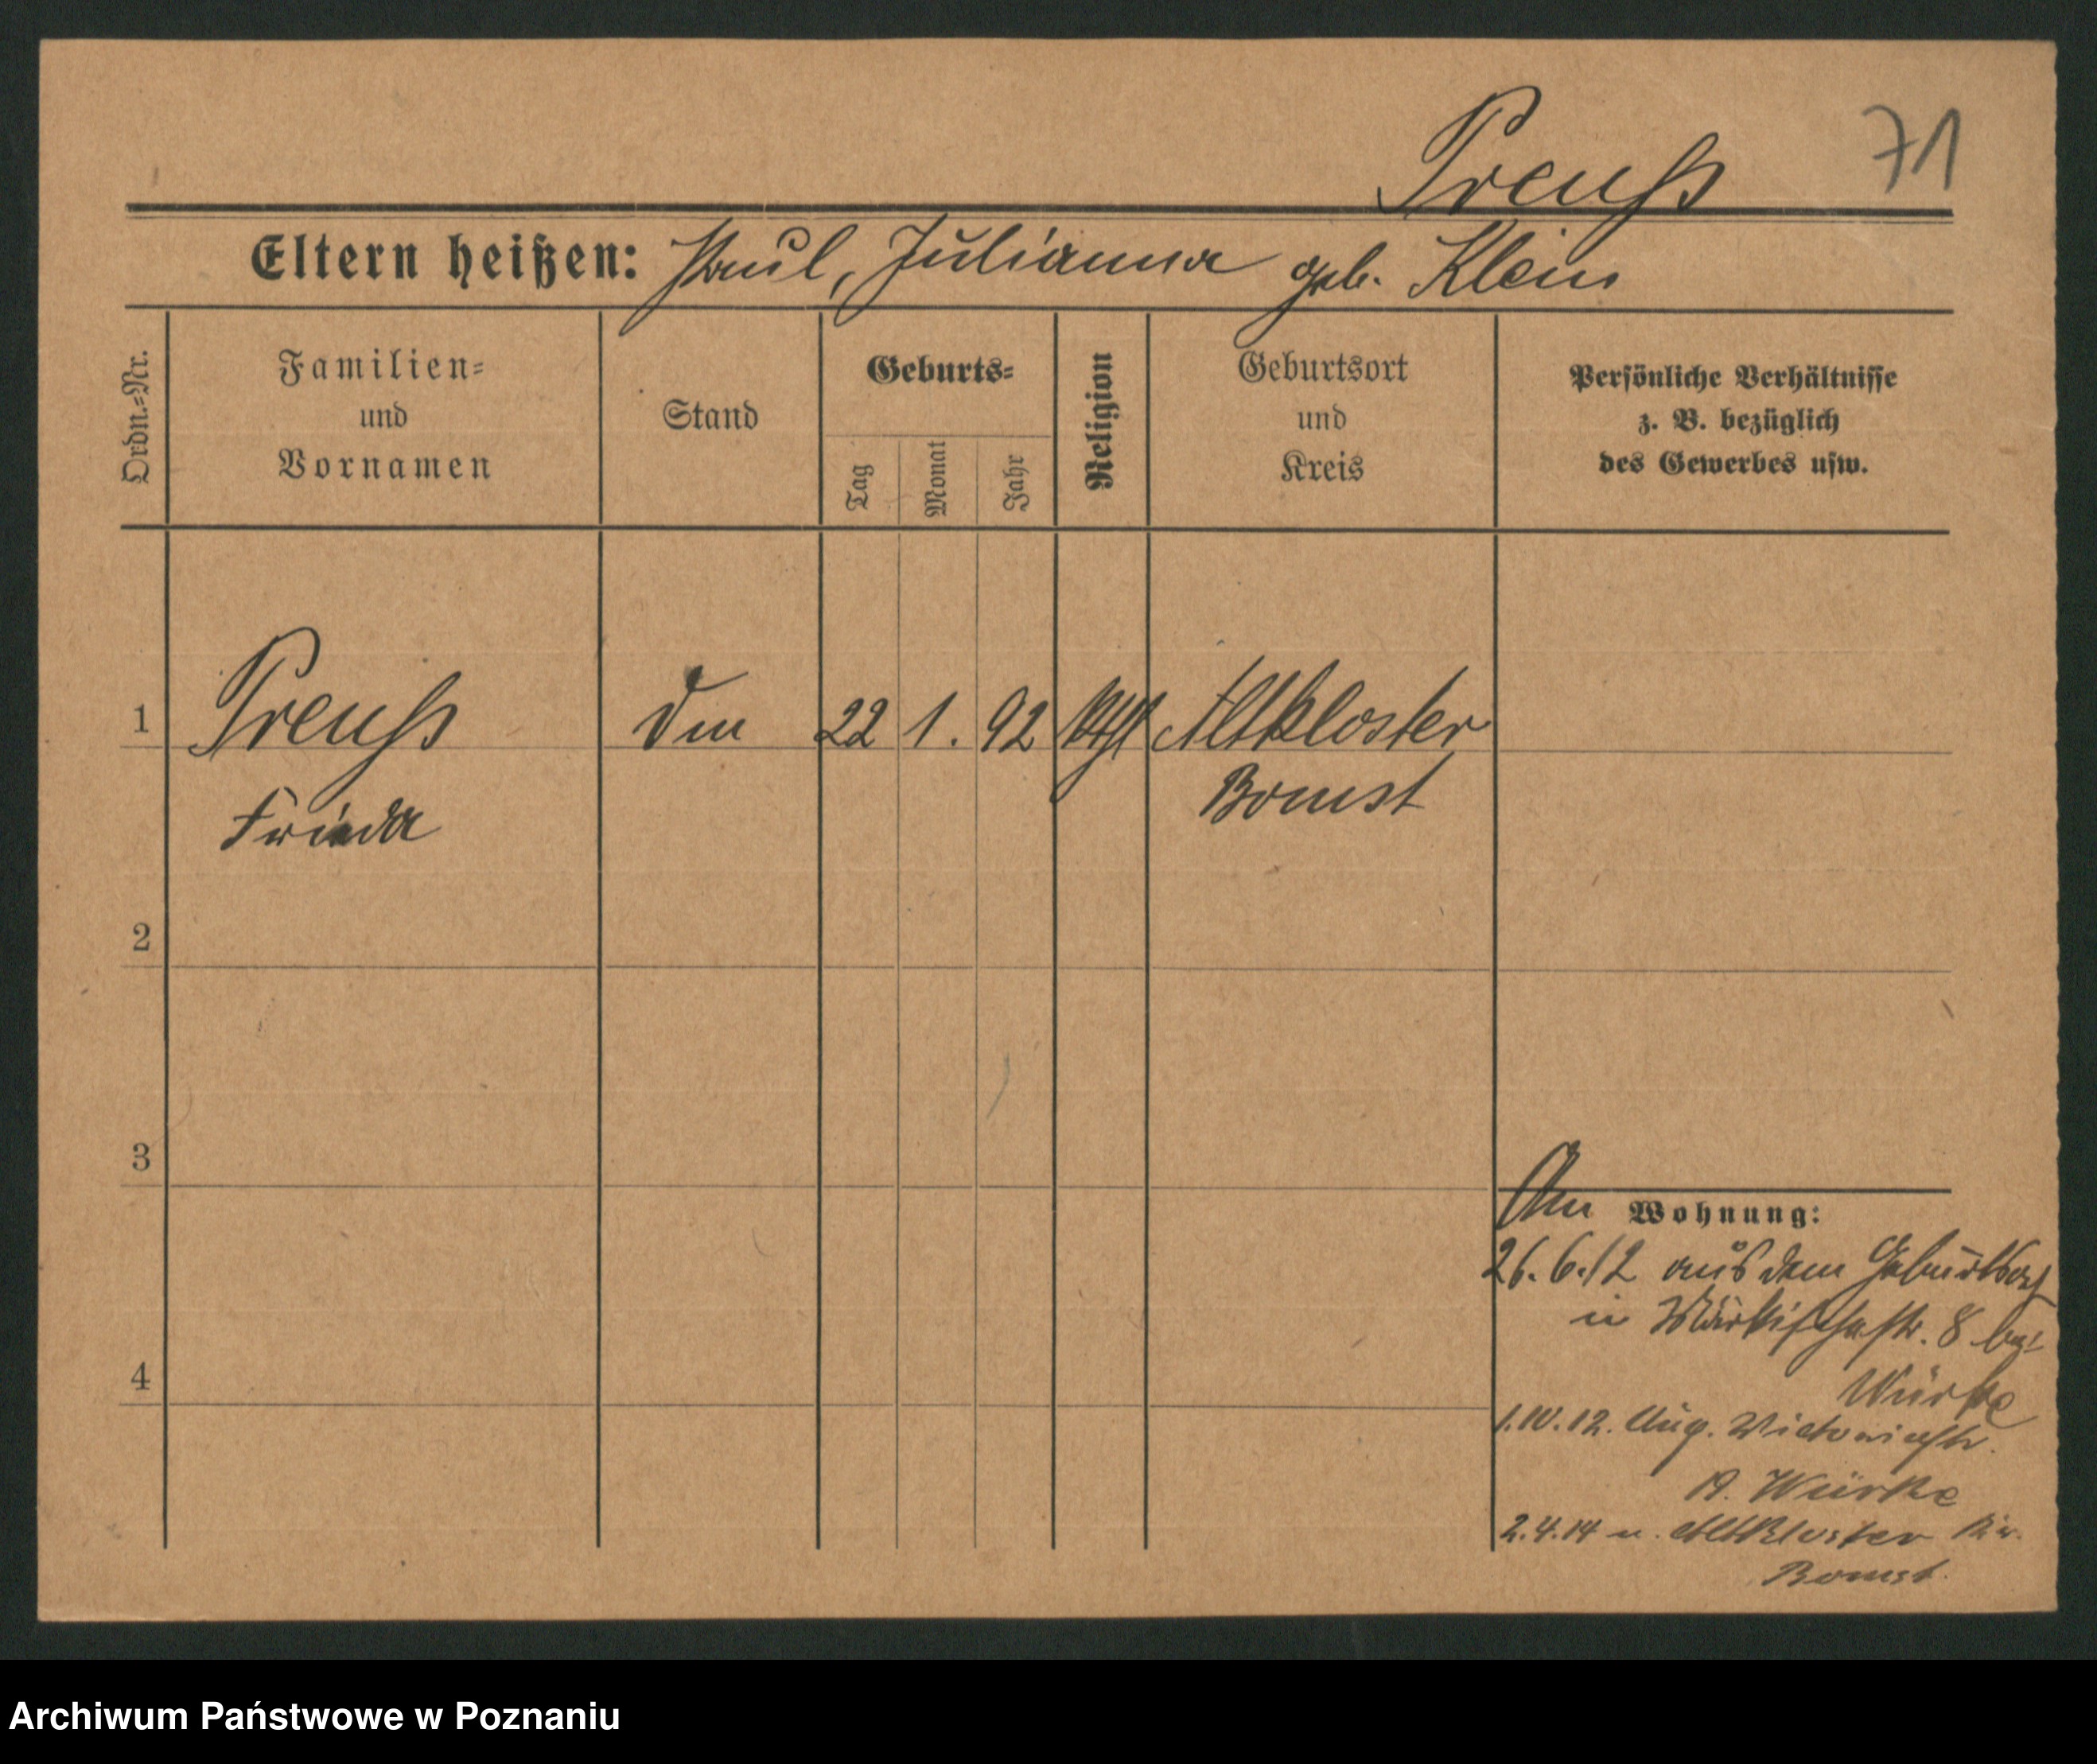 Preuß
71
Eltern heißen: Paul, Julianna geb. Klein
Ordn.-Nr.
Familien-
und
Vornamen
Stand
Geburts-
Tag
Monat
Jahr
Religion
Geburtsort
und
Kreis
Persönliche Verhältnisse
z. B. bezüglich
des Gewerbes usw.
1 Preuß 22 1. 92 kth Altkloster
Frieda Bomst
2
3
4
Am Wohnung:
26.6.12 aus dem Geburtsort
in Märkischestr. 8 bei
Würke
1.10.12. Aug. Victoriastr.
Würke
2.4.14 n. Altkloster Kr.
Bomst.
Archiwum Państwowe w Poznaniu